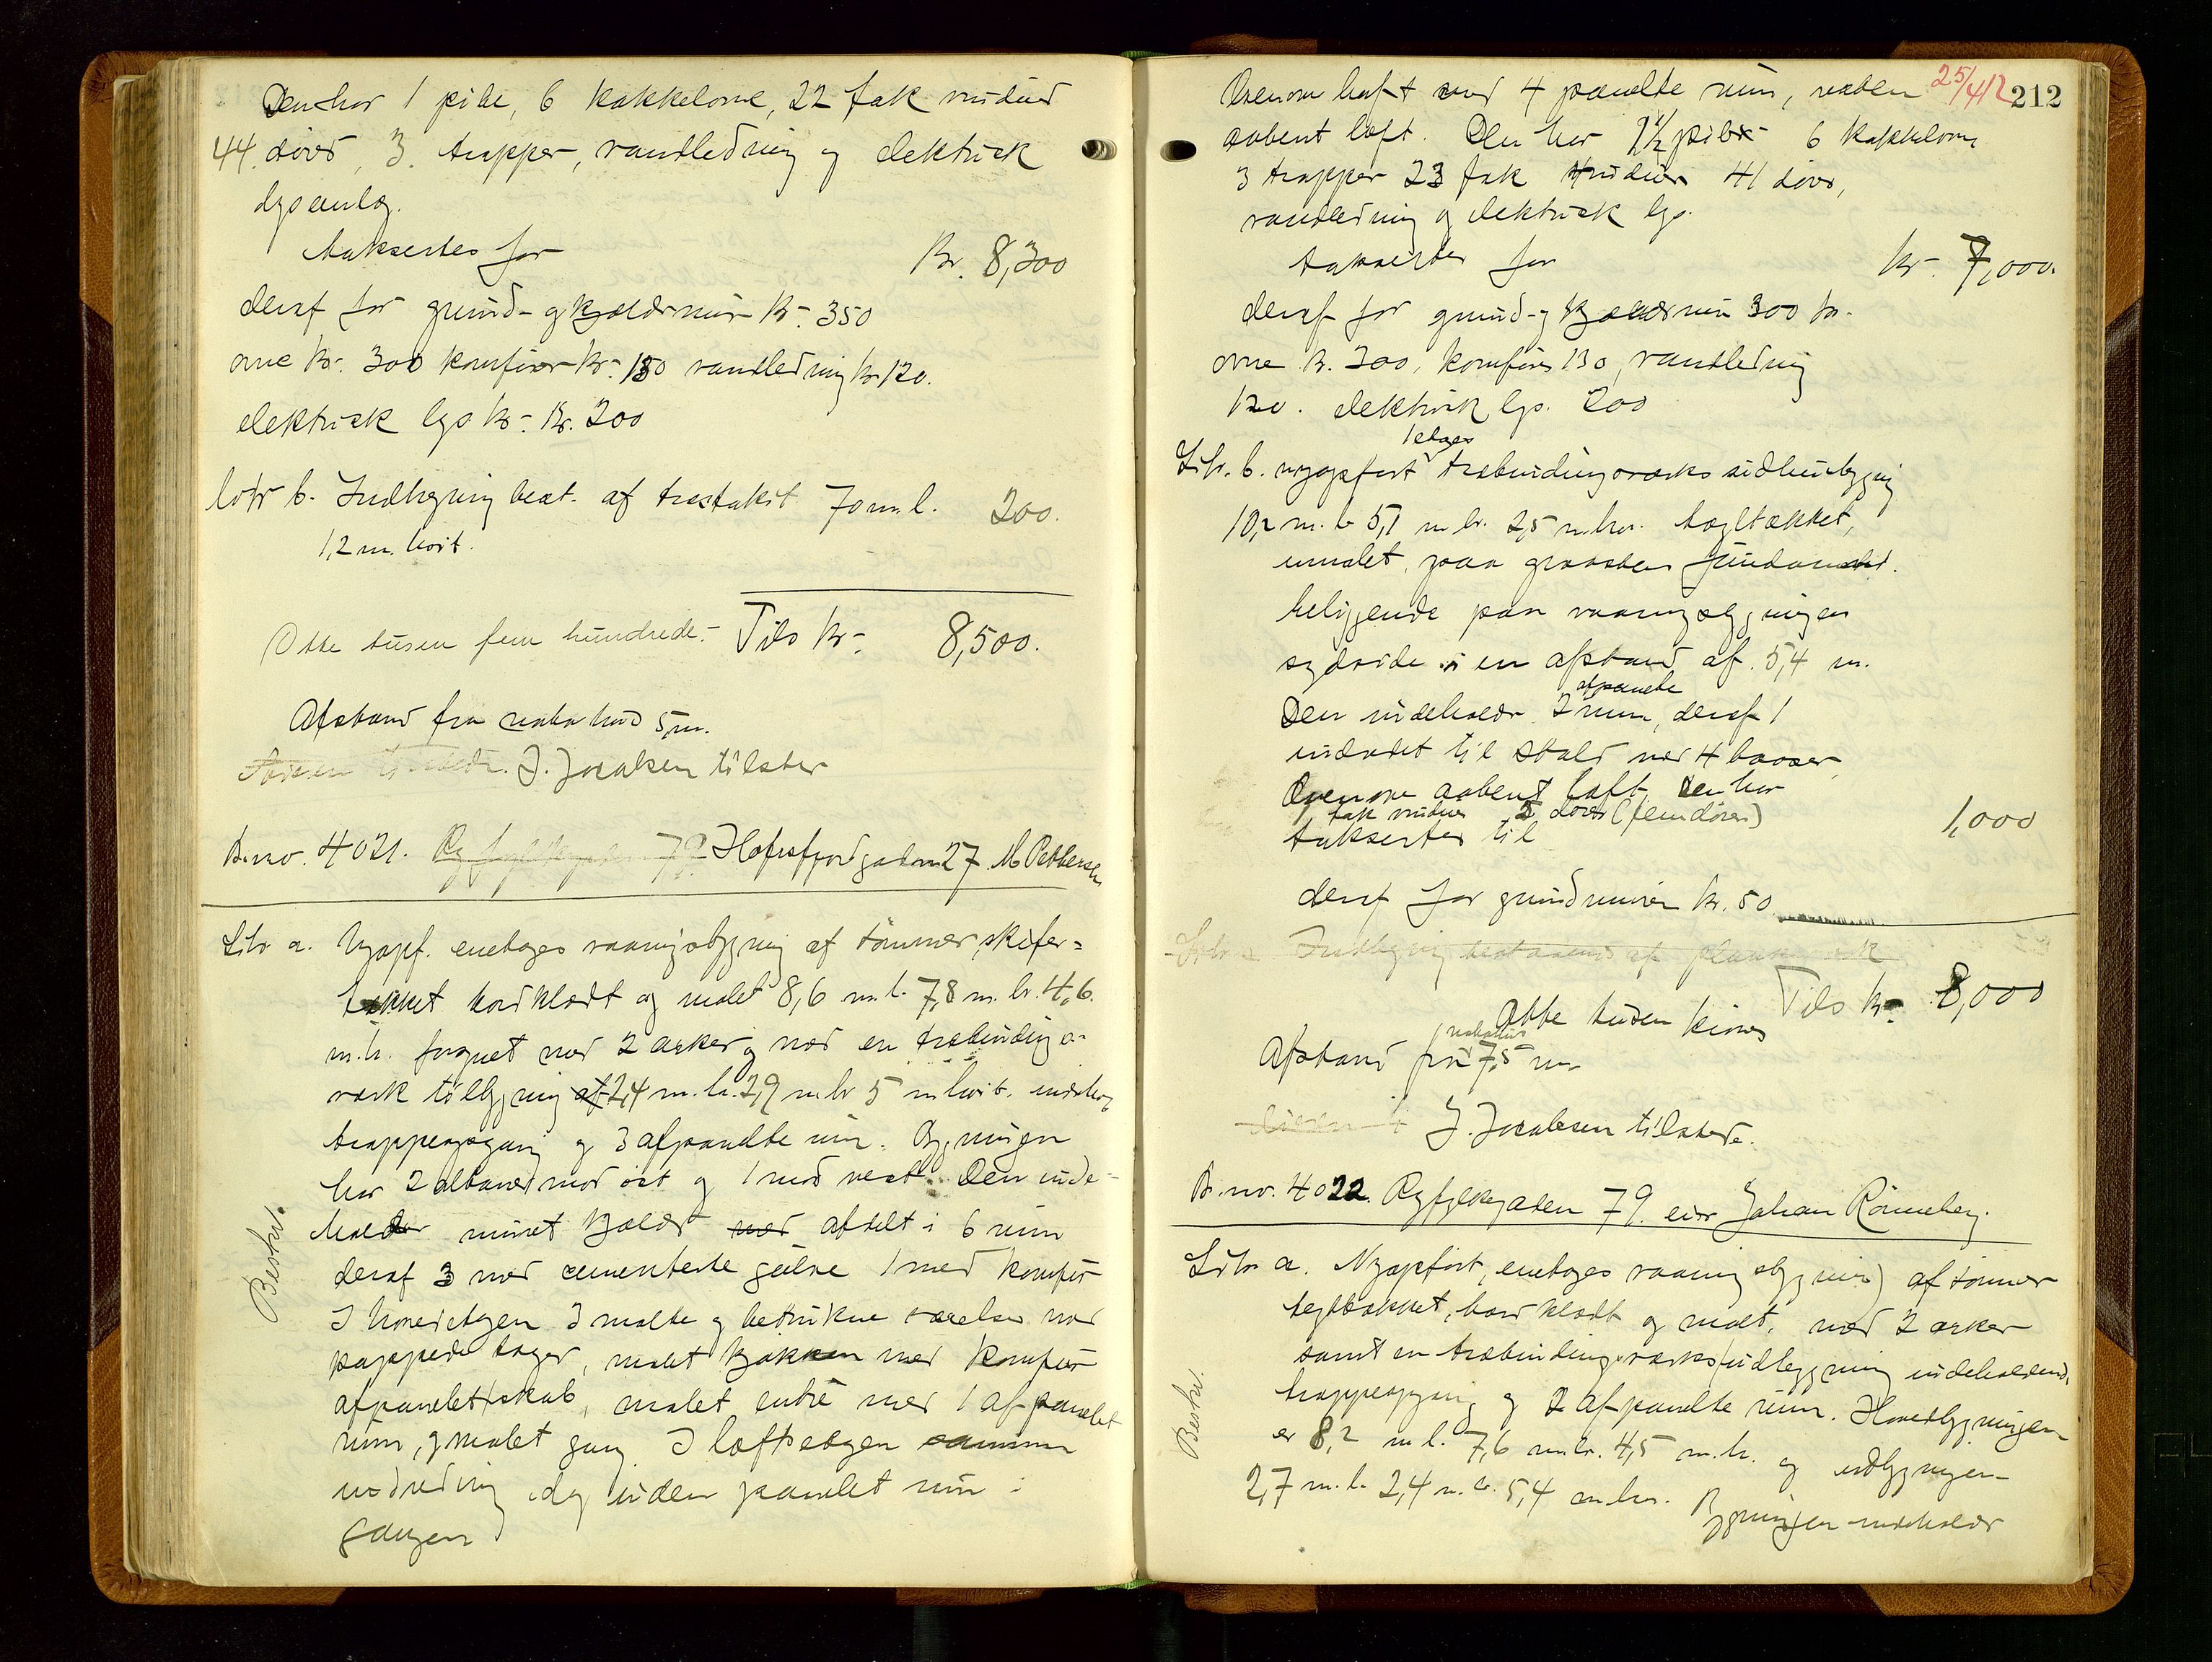 Den har 1 pibe, 6 kakkelovne, 22 fak vinduer
44 döre, 3 trapper, vandledning og elektrisk
lysanlæg.
taksertes for Kr. 8,300
deraf for grund- og kjeldermur kr. 350
ovne kr. 300 komfürer kr. 130 vandledning kr 120.
elektrisk lys kr. 200
Litr b. Indhegning best. af træstakit 70 m l. 200.
1,2 m. höit.
Otte tusen fem hundrede.- Tils kr. 8,500.
Afstand fra nabohus 5 m.
J. Jacobsen tilstede
Br.no. 4021. Hafrsfjordgaden 27 M Pettersen
Litr a. Nyopf. enetages vaaningsbygning af tömmer, skifer-
tækket bordklædt og malet 8,6 m. l. 7,8 m. br. 4,6.
m. h. forsynet med 2 arker og med en træbindings-
værk tilbygning af 2,4 m. l. 2,9 m. br 5 m höit. indeh.
trappeopgang og 3 afpanelte rum. Bygningen
har 2 altaner mod öst og 1 mod vest. Den inde-
holder muret kjælder med afdelt i 6 rum
Beskr.
deraf 3 med cementerte gulve 1 med komfur
I hovedetagen 3 malte og betrukne værelser med
pappede tager, malet kjøkken med komfur
afpanelet skab, malet entré med 1 afpanelet
rum, og malet gang. I loftsetagen samme
indredning dog uden panelet rum i
gangen
25/4 12 212
Ovenover loft med 4 panelte rum, reden
aabent loft. Den har 1 1/2 piber 6 kakkelovne
3 trapper 23 fak vinduer 41 döre,
vandledning og elektrisk lys.
taksertes for kr. 7,000.
deraf for grund- og kjældermur 300 kr.
ovne kr. 300, komfürer 130, vandledning
120. elektrisk lys. 200
1 etages
Litr. b. nyopfört træbindingsværks udhusbygning
10,2 m. l. 5,1 m. br. 2,5 m. höi. tegltækket,
umalet, paa graastens fundament.
beliggende paa vaaningsbygningens
sydside i en afstand af 5,4 m.
afpanelte
Den indeholder 2 rum, deraf 1
indredet til stald med 4 baaser.
Ovenover aabent loft. Den har
1 fak vinduer 5 döre (fem döre)
taksertes til 1,000
deraf for grundmuren kr. 50
Litr c Indhegning bestaaende af plank
Tils kr. 8,000
Otte tusen kroner
nabohus
Afstand fra 7,5 m.
J. Jacobsen tilstede.
Br. no. 4022. Ryfylkegaden 79. eier Johan Rönneberg.
Litr a. Nyopfört, enetages vaaningsbygning af tömmer
tegltækket, bordklædt og malt, med 2 arker
samt en træbindingsværks udbygning indeholdende
trappeopgang og 2 afpanelte rum. Hovedbygningen
Beskr.
er 8,2 m l. 7,6 m. br. 4,5 m. h. og udbygningen
2,7 m. l. 2,4 m. br. 5,4 m. h. Bygningen indeholder